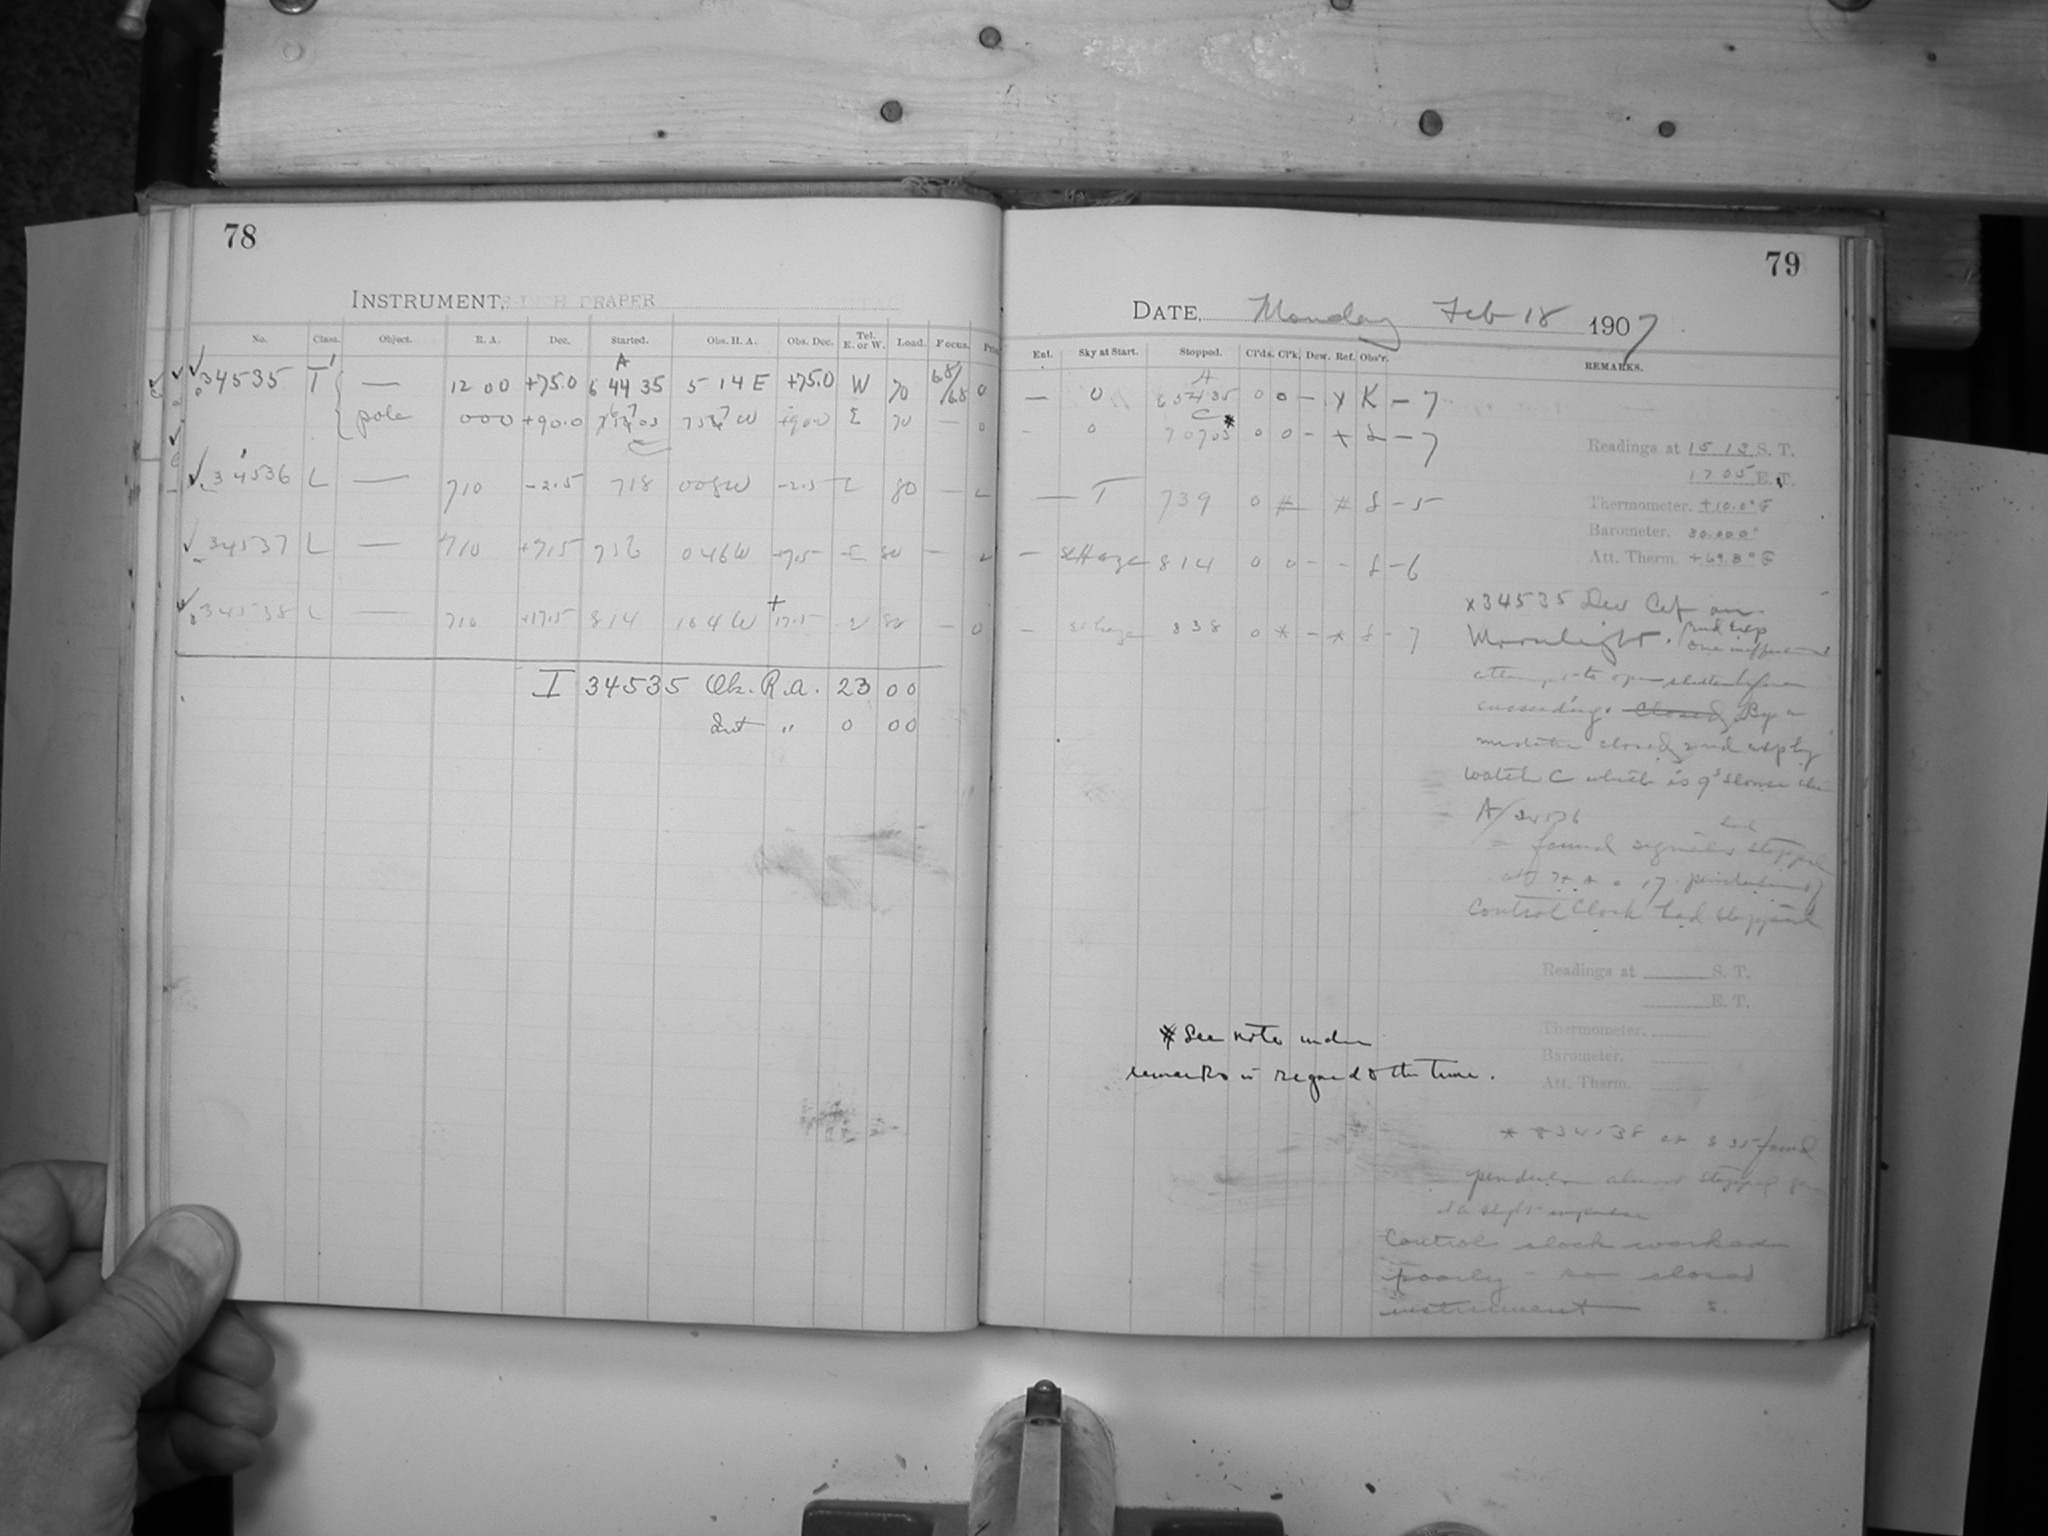 78
INSTRUMENT, 8-INCH DRAPER
No. Class. Object. R. A. Dec. Started. Obs. H. A. Obs. Dec. Tel. E. or W. Load. Focus.
A
34535 T — 12 00 +75.0 6 44 35 5 14 E +75.0 W 70 6.8/6.8 0
pole 0 00 +90.0 W +90.0 E 70 — 0
34536 L — 7 10 -2.5 7 18 0 08 W -2.5 80 —
34537 L — 7 10 +7.5 7 56 0 46 W +7.5 E 80 —
34538 L — 7 10 +17.5 8 14 1 04 W +17.5 80 — 0
I 34535 Ob. R.A. 23 00
Int " 0 00
79
DATE, Monday Feb 18 1907
Ent. Sky at Start. Stopped. Cl'ds. Cl'k. Dew. Ref. Obs'r. REMARKS.
A
— 0 6 54 35 0 0 — x K — 7
C
- 0 7 07 05* 0 0 - x S - 7
— T 7 39 0 * * S - 5
— Sl Haze 8 14 0 0 - - S - 6
- Sl haze 8 38 0 * - * S - 7
Readings at 15 13 S. T.
17 05 E. T.
Thermometer. +10.0° F
Barometer. 30.000"
Att. Therm. +69.8° F
x 34535 Dew Cap on
Moonlight. 2nd Exp
one
attempt to open shutter before
succeeding. Closed By a
closed 2nd exp by
watch C which is 9s slower than
A/34536
found stopped
at pendulum of
Control Clock had stopped
Readings at S. T.
E. T.
Thermometer.
Barometer.
Att. Therm.
* See note under
remarks in regard to the time.
* 34538 at 8 35 found
pendulum almost stopped
slight impulse
Control clock worked
poorly - so closed
instrument S.